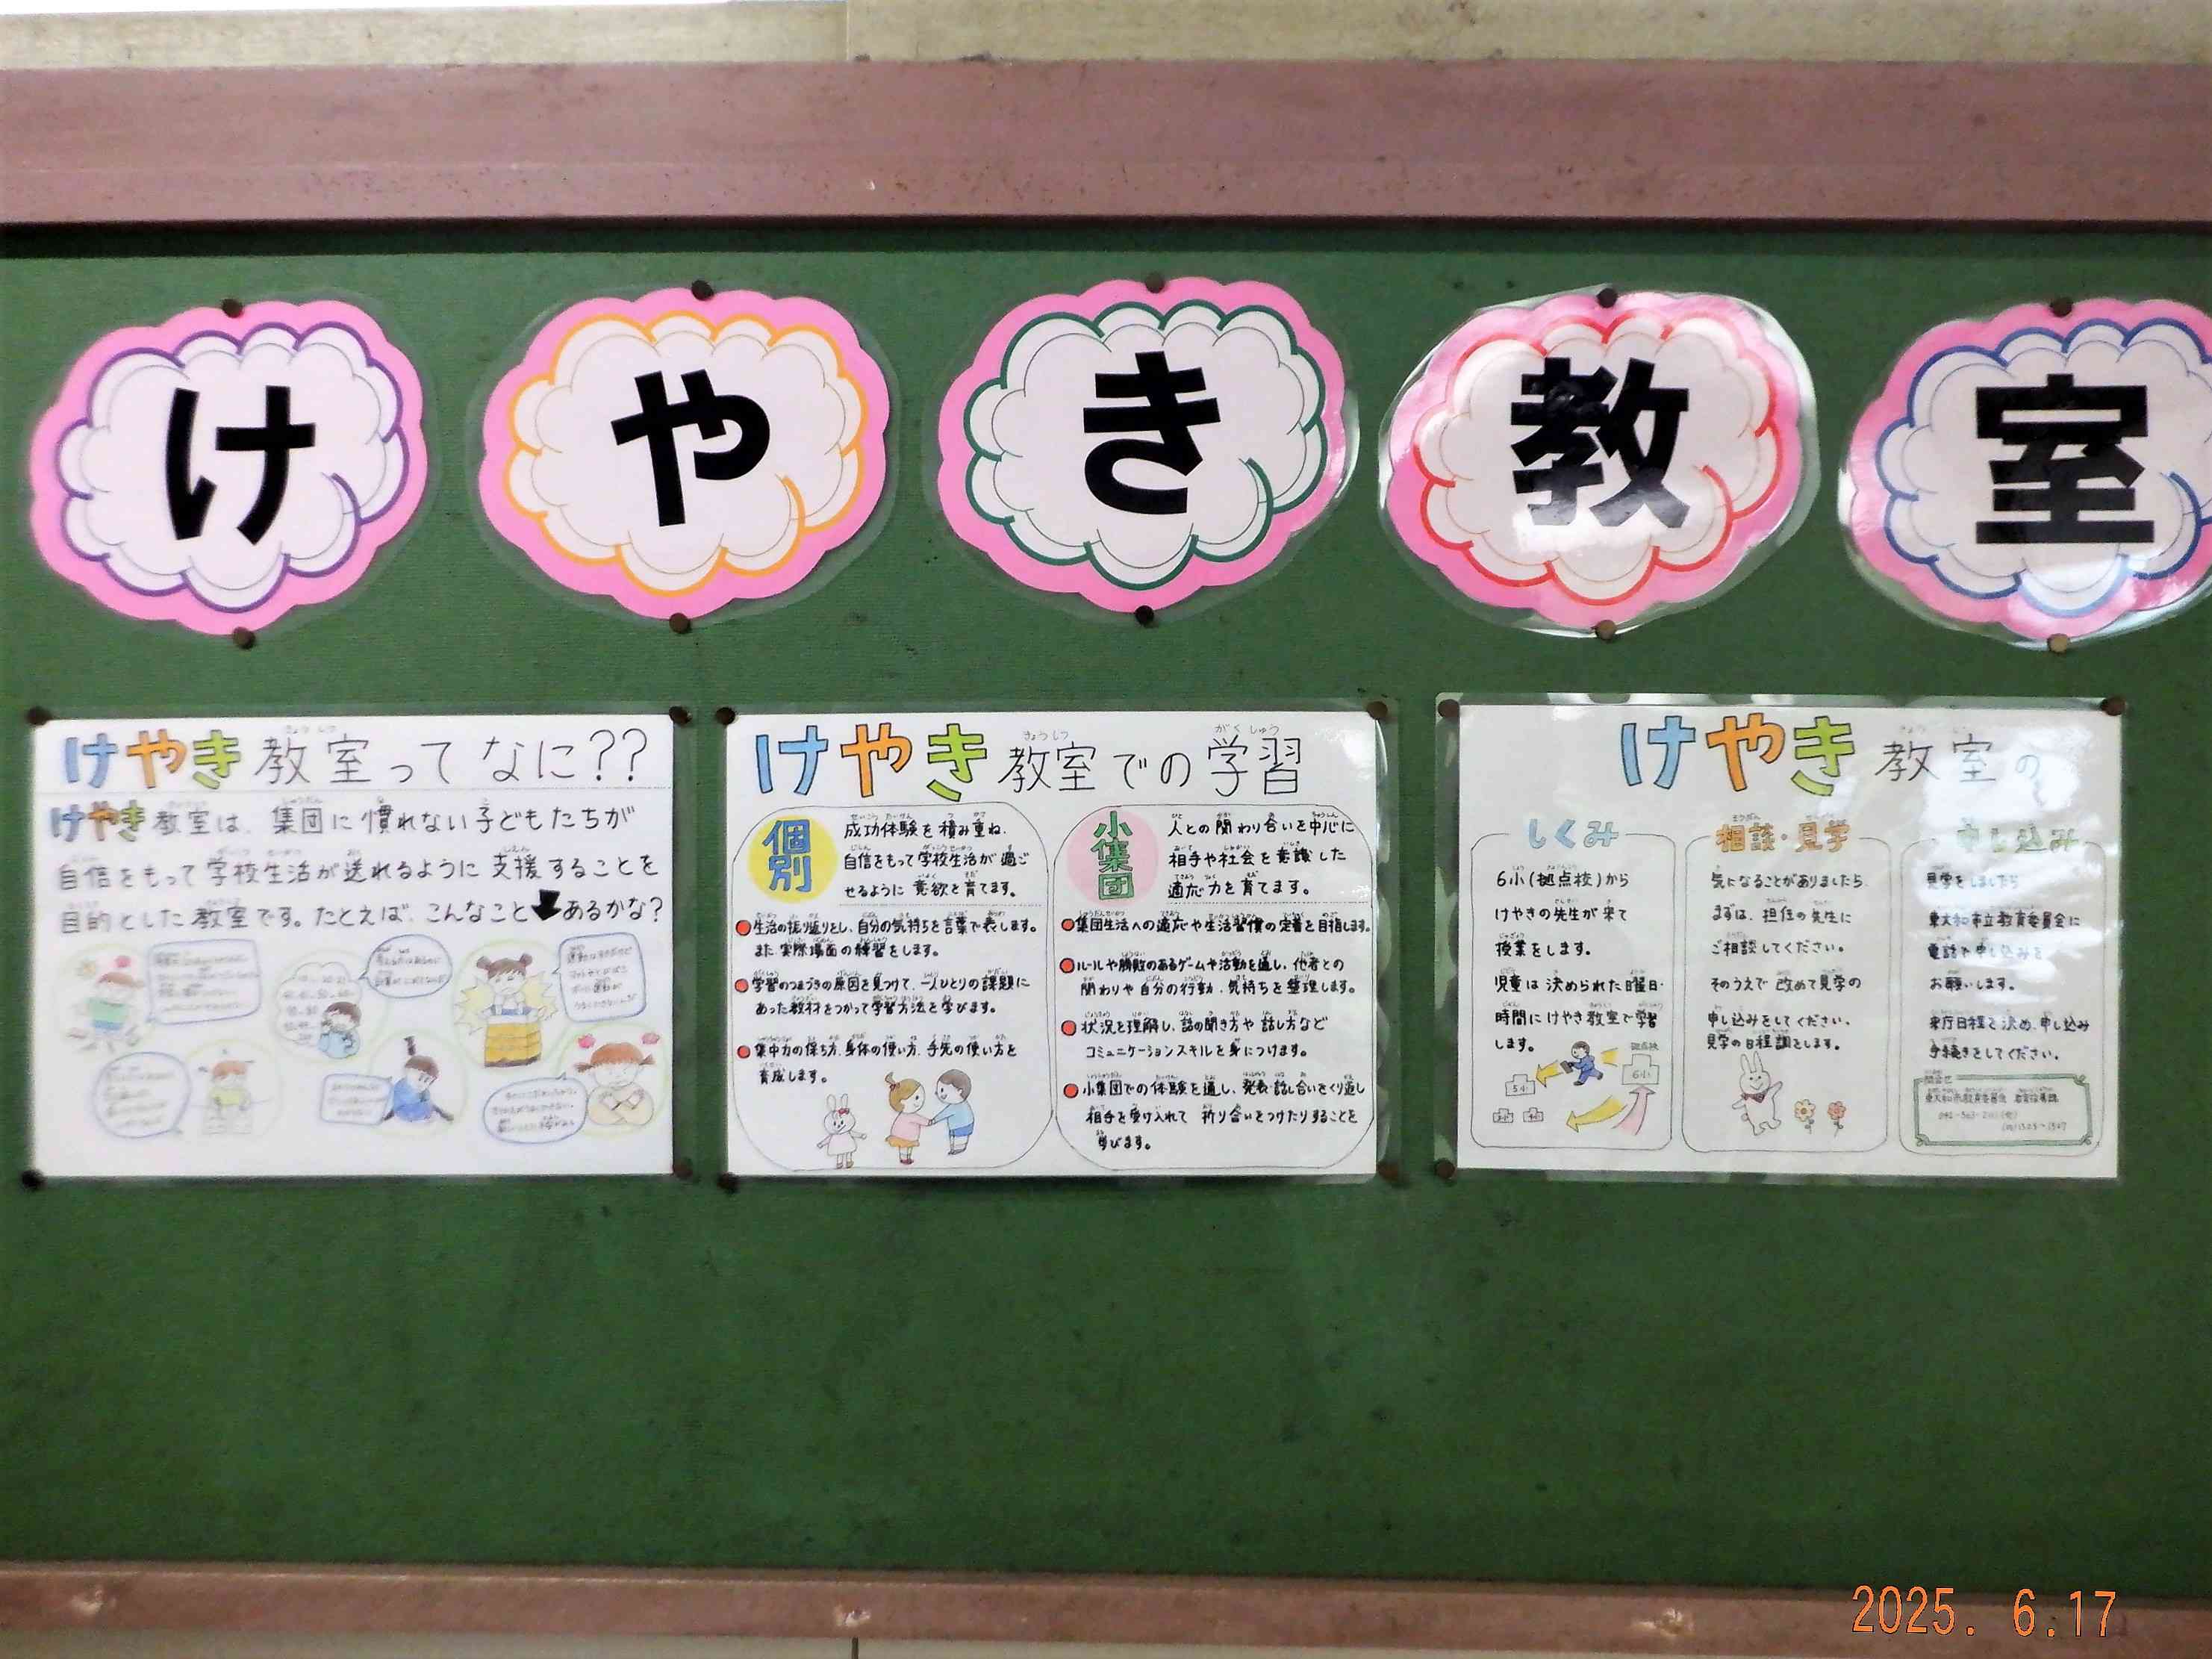 けやき教室
けやき教室ってなに??
けやき教室は、集団に慣れない子どもたちが
自信をもって学校生活が送れるように支援することを
目的とした教室です。たとえば、こんなことあるかな?
けやき教室での学習
個別
成功体験を積み重ね、
自信をもって学校生活が過ご
せるように意欲を育てます。
生活の振り返りをし、自分の気持ちを言葉で表します。
また実際場面の練習をします。
学習のつまづきの原因を見つけて、一人ひとりの課題に
あった教材をつかって学習方法を学びます。
集中力の保ち方、身体の使い方、手先の使い方を
育成します。
小集団
人との関わり合いを中心に
相手や社会を意識した
適応力を育てます。
集団生活への適応や生活習慣の定着を目指します。
ルールや勝敗のあるゲームや活動を通し、他者との
関わりや自分の行動、気持ちを整理します。
状況を理解し、話の聞き方や話し方など
コミュニケーションスキルを身につけます。
小集団での体験を通し、発表・話し合いをくり返し
相手を受け入れて折り合いをつけたりすることを
学びます。
けやき教室の
しくみ
6小(拠点校)から
けやきの先生が来て
授業をします。
児童は決められた曜日・
時間にけやき教室で学習
します。
拠点校
6小
5小
相談・見学
気になることがありましたら
まずは、担任の先生に
ご相談してください。
そのうえで改めて見学の
申し込みをしてください。
見学の日程調をします。
申し込み
見学をしましたら
東大和市立教育委員会に
電話や申し込みを
お願いします。
来庁日程を決め、申し込み
手続きをしてください。
2025. 6.17